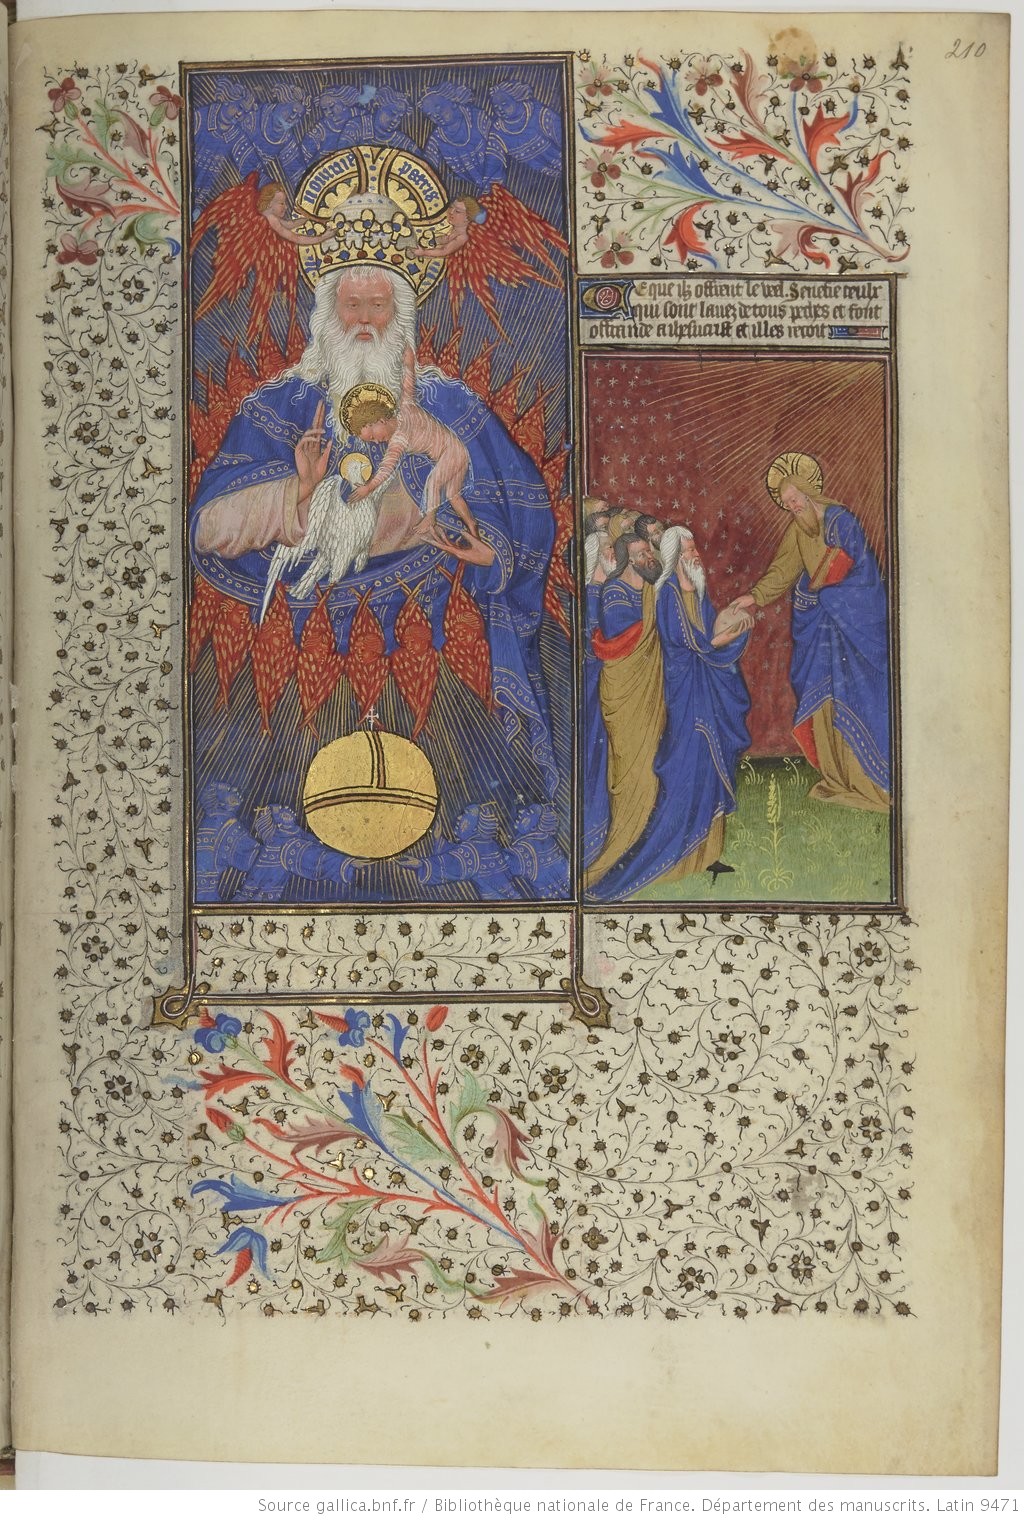 210
nomine patris
Ce que ilz offrent le vel. Senefie ceulx
qui sont lavez de tous pechez et font
offrande a ihesucrist et illes recoit
Source gallica.bnf.fr / Bibliothèque nationale de France. Département des manuscrits. Latin 9471